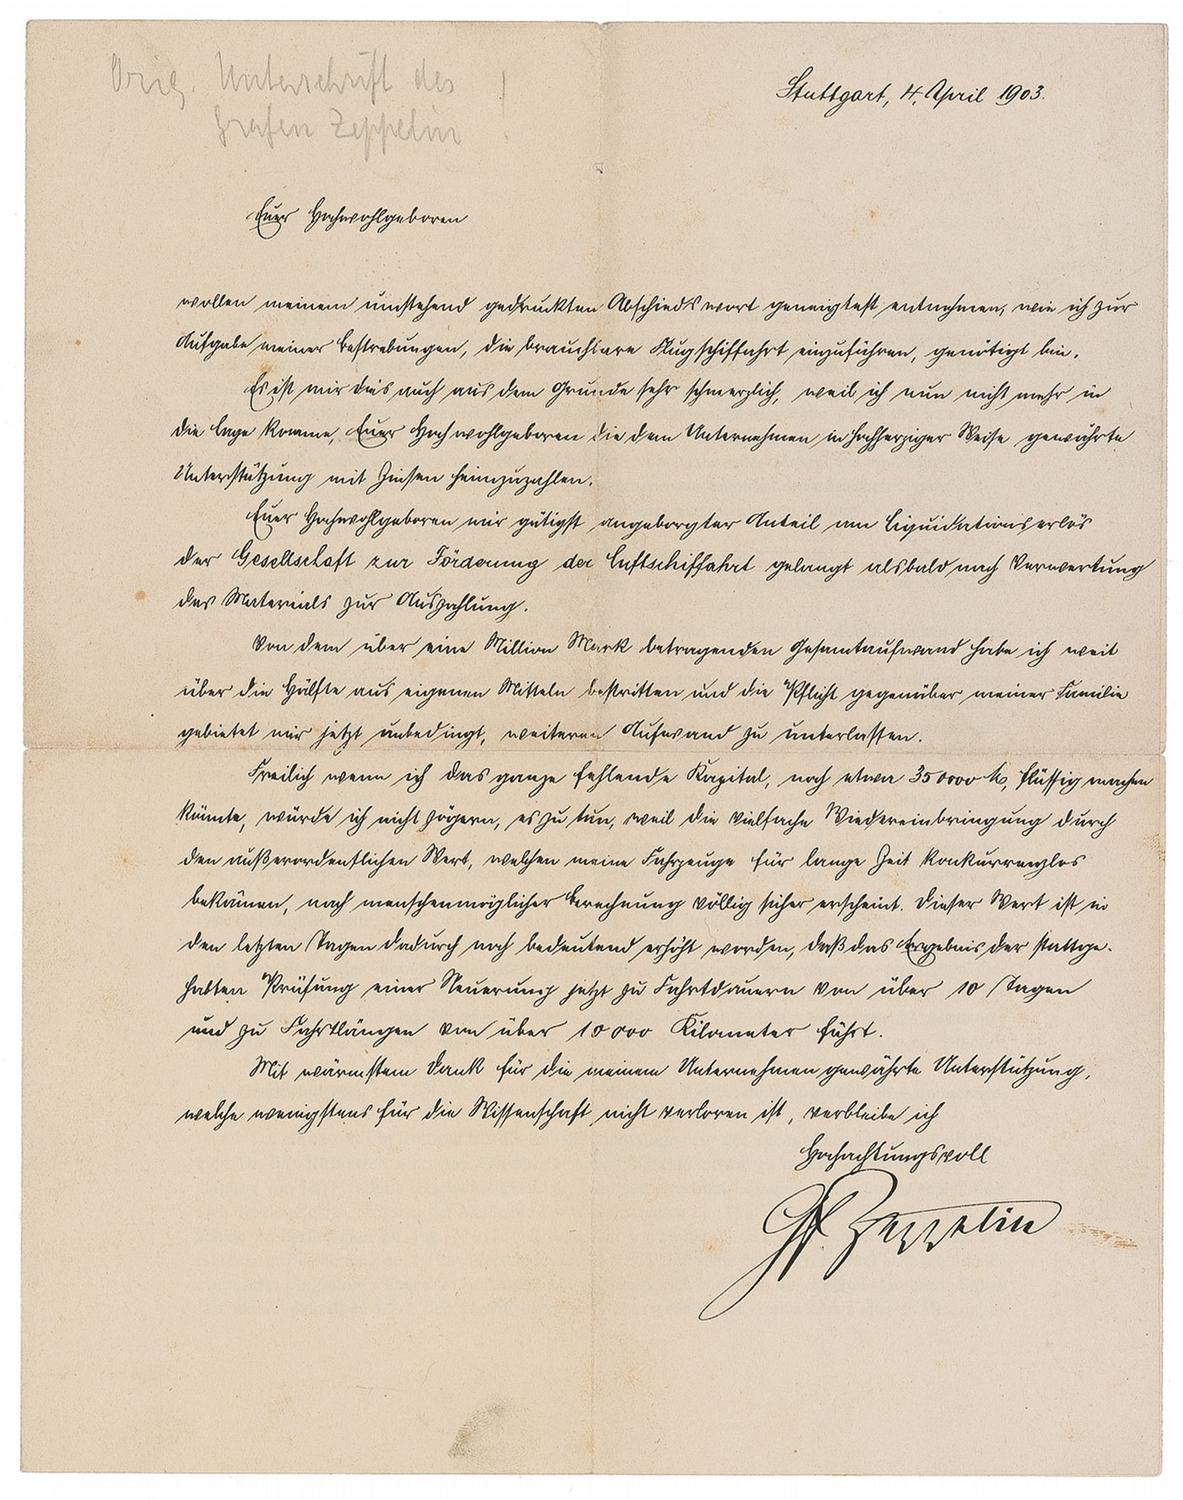 Orig. Unterschrift des !
Grafen Zeppelin !
Stuttgart, 4. April 1903.
Euer Hochwohlgeboren
wollen meinem umstehend gedruckten Abschiedswort geneigtest entnehmen, wie ich zur
Aufgabe meiner Bestrebungen, die brauchbare Flugschiffahrt einzuführen, genötigt bin.
Es ist mir dies auch aus dem Grunde sehr schmerzlich, weil ich nun nicht mehr in
die Lage komme, Euer Hochwohlgeboren die dem Unternehmen in hochherziger Weise gewährte
Unterstützung mit Zinsen heimzuzahlen.
Euer Hochwohlgeboren mir gütigst angeborgter Anteil am Liquidationserlös
der Gesellschaft zur Förderung der Luftschiffahrt gelangt alsbald nach Verwertung
des Materials zur Auszahlung.
Von dem über eine Million Mark betragenden Gesamtaufwand habe ich weit
über die Hälfte aus eigenen Mitteln bestritten und die Pflicht gegenüber meiner Familie
gebietet mir jetzt unbedingt, weiteren Aufwand zu unterlassen.
Freilich wenn ich das ganze fehlende Kapital, noch etwa 350000 M, flüssig machen
könnte, würde ich nicht zögern, es zu tun, weil die vielfache Wiedereinbringung durch
den außerordentlichen Wert, welchen meine Fahrzeuge für lange Zeit konkurrenzlos
bekämen, nach menschenmöglicher Berechnung völlig sicher erscheint. Dieser Wert ist in
den letzten Tagen dadurch noch bedeutend erhöht worden, daß das Ergebnis der stattge-
habten Prüfung einer Neuerung jetzt zu Fahrtdauern von über 10 Tagen
und zu Fahrtlängen von über 10000 Kilometer führt.
Mit wärmstem Dank für die meinem Unternehmen gewährte Unterstützung,
welche wenigstens für die Wissenschaft nicht verloren ist, verbleibe ich
Hochachtungsvoll
Gf. Zeppelin